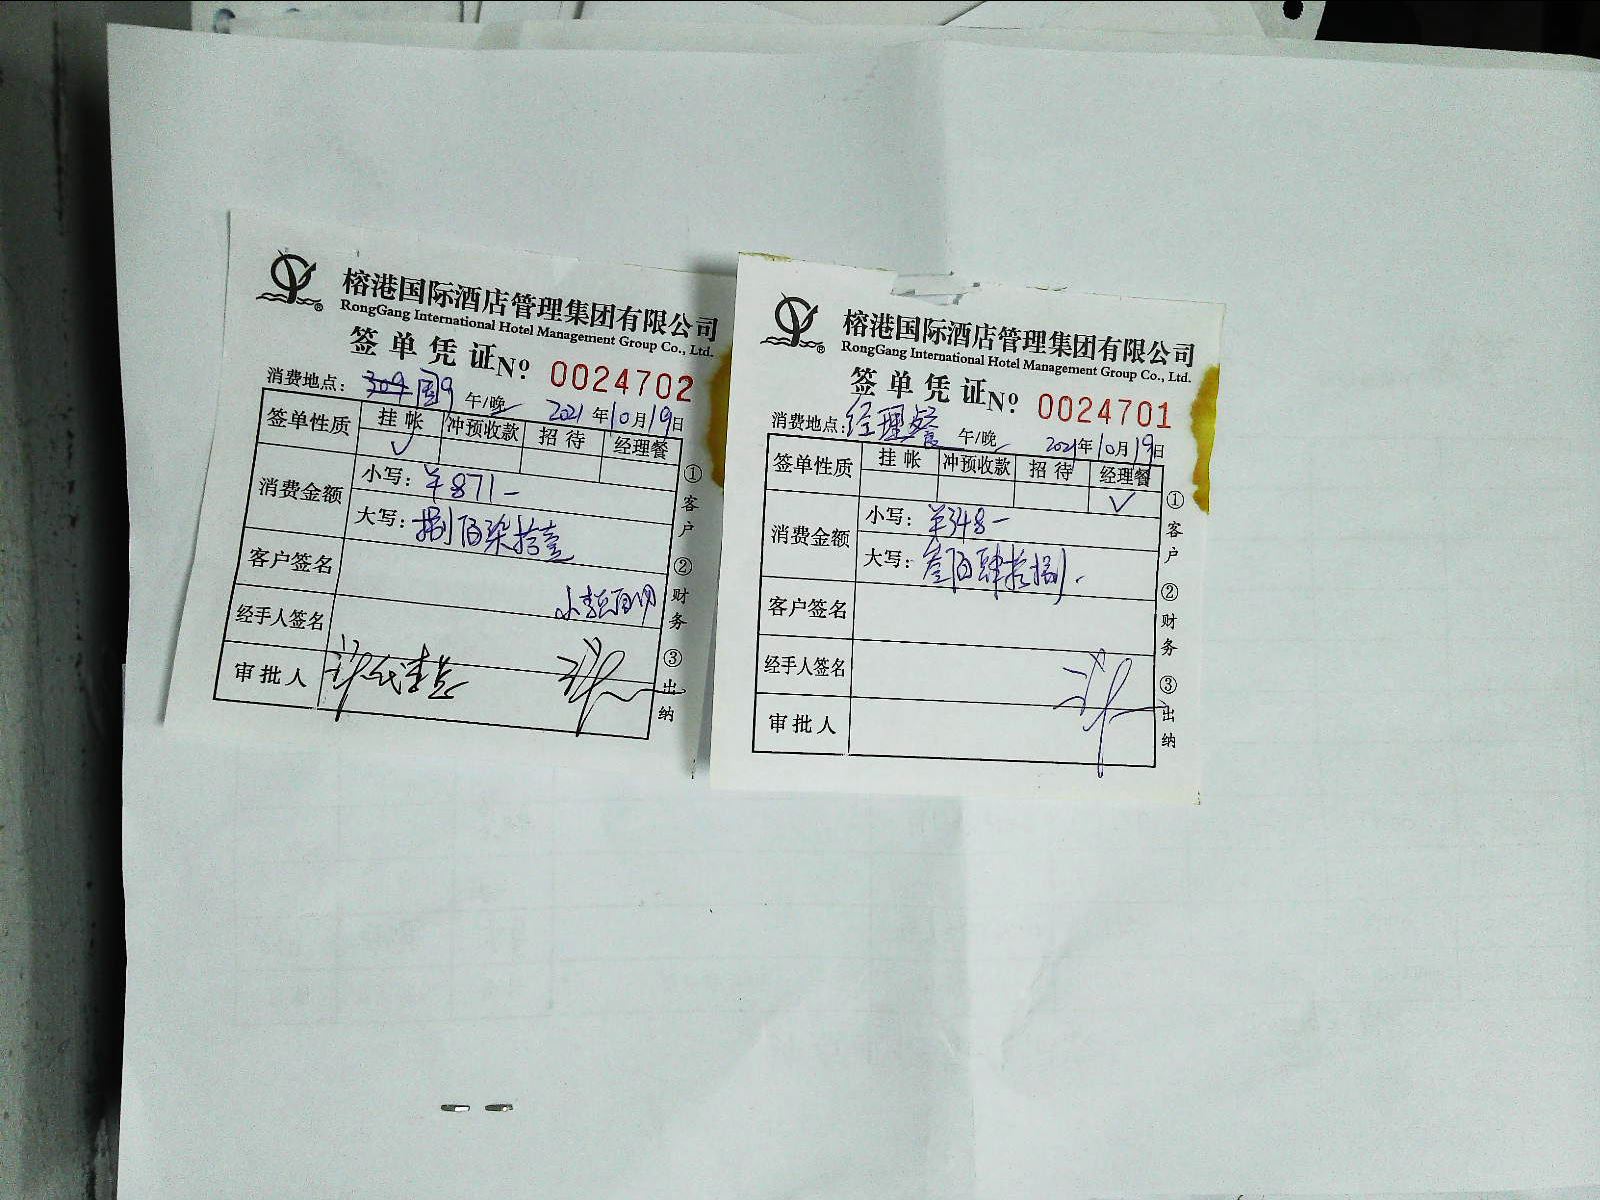 榕港国际酒店管理集团有限公司
RongGang International Hotel Management Group Co., Ltd.
签单凭证 Nº 0024702
消费地点: 周9 午/晚 2021年10月19日
签单性质 挂帐 冲预收款 招待 经理餐
✓
消费金额 小写: ¥871—
大写: 捌佰柒拾壹
客户签名
经手人签名
审批人
①客户 ②财务 ③出纳
榕港国际酒店管理集团有限公司
RongGang International Hotel Management Group Co., Ltd.
签单凭证 Nº 0024701
消费地点: 经理餐 午/晚 2021年10月19日
签单性质 挂帐 冲预收款 招待 经理餐
✓
消费金额 小写: ¥348—
大写: 叁佰肆拾捌.
客户签名
经手人签名
审批人
①客户 ②财务 ③出纳